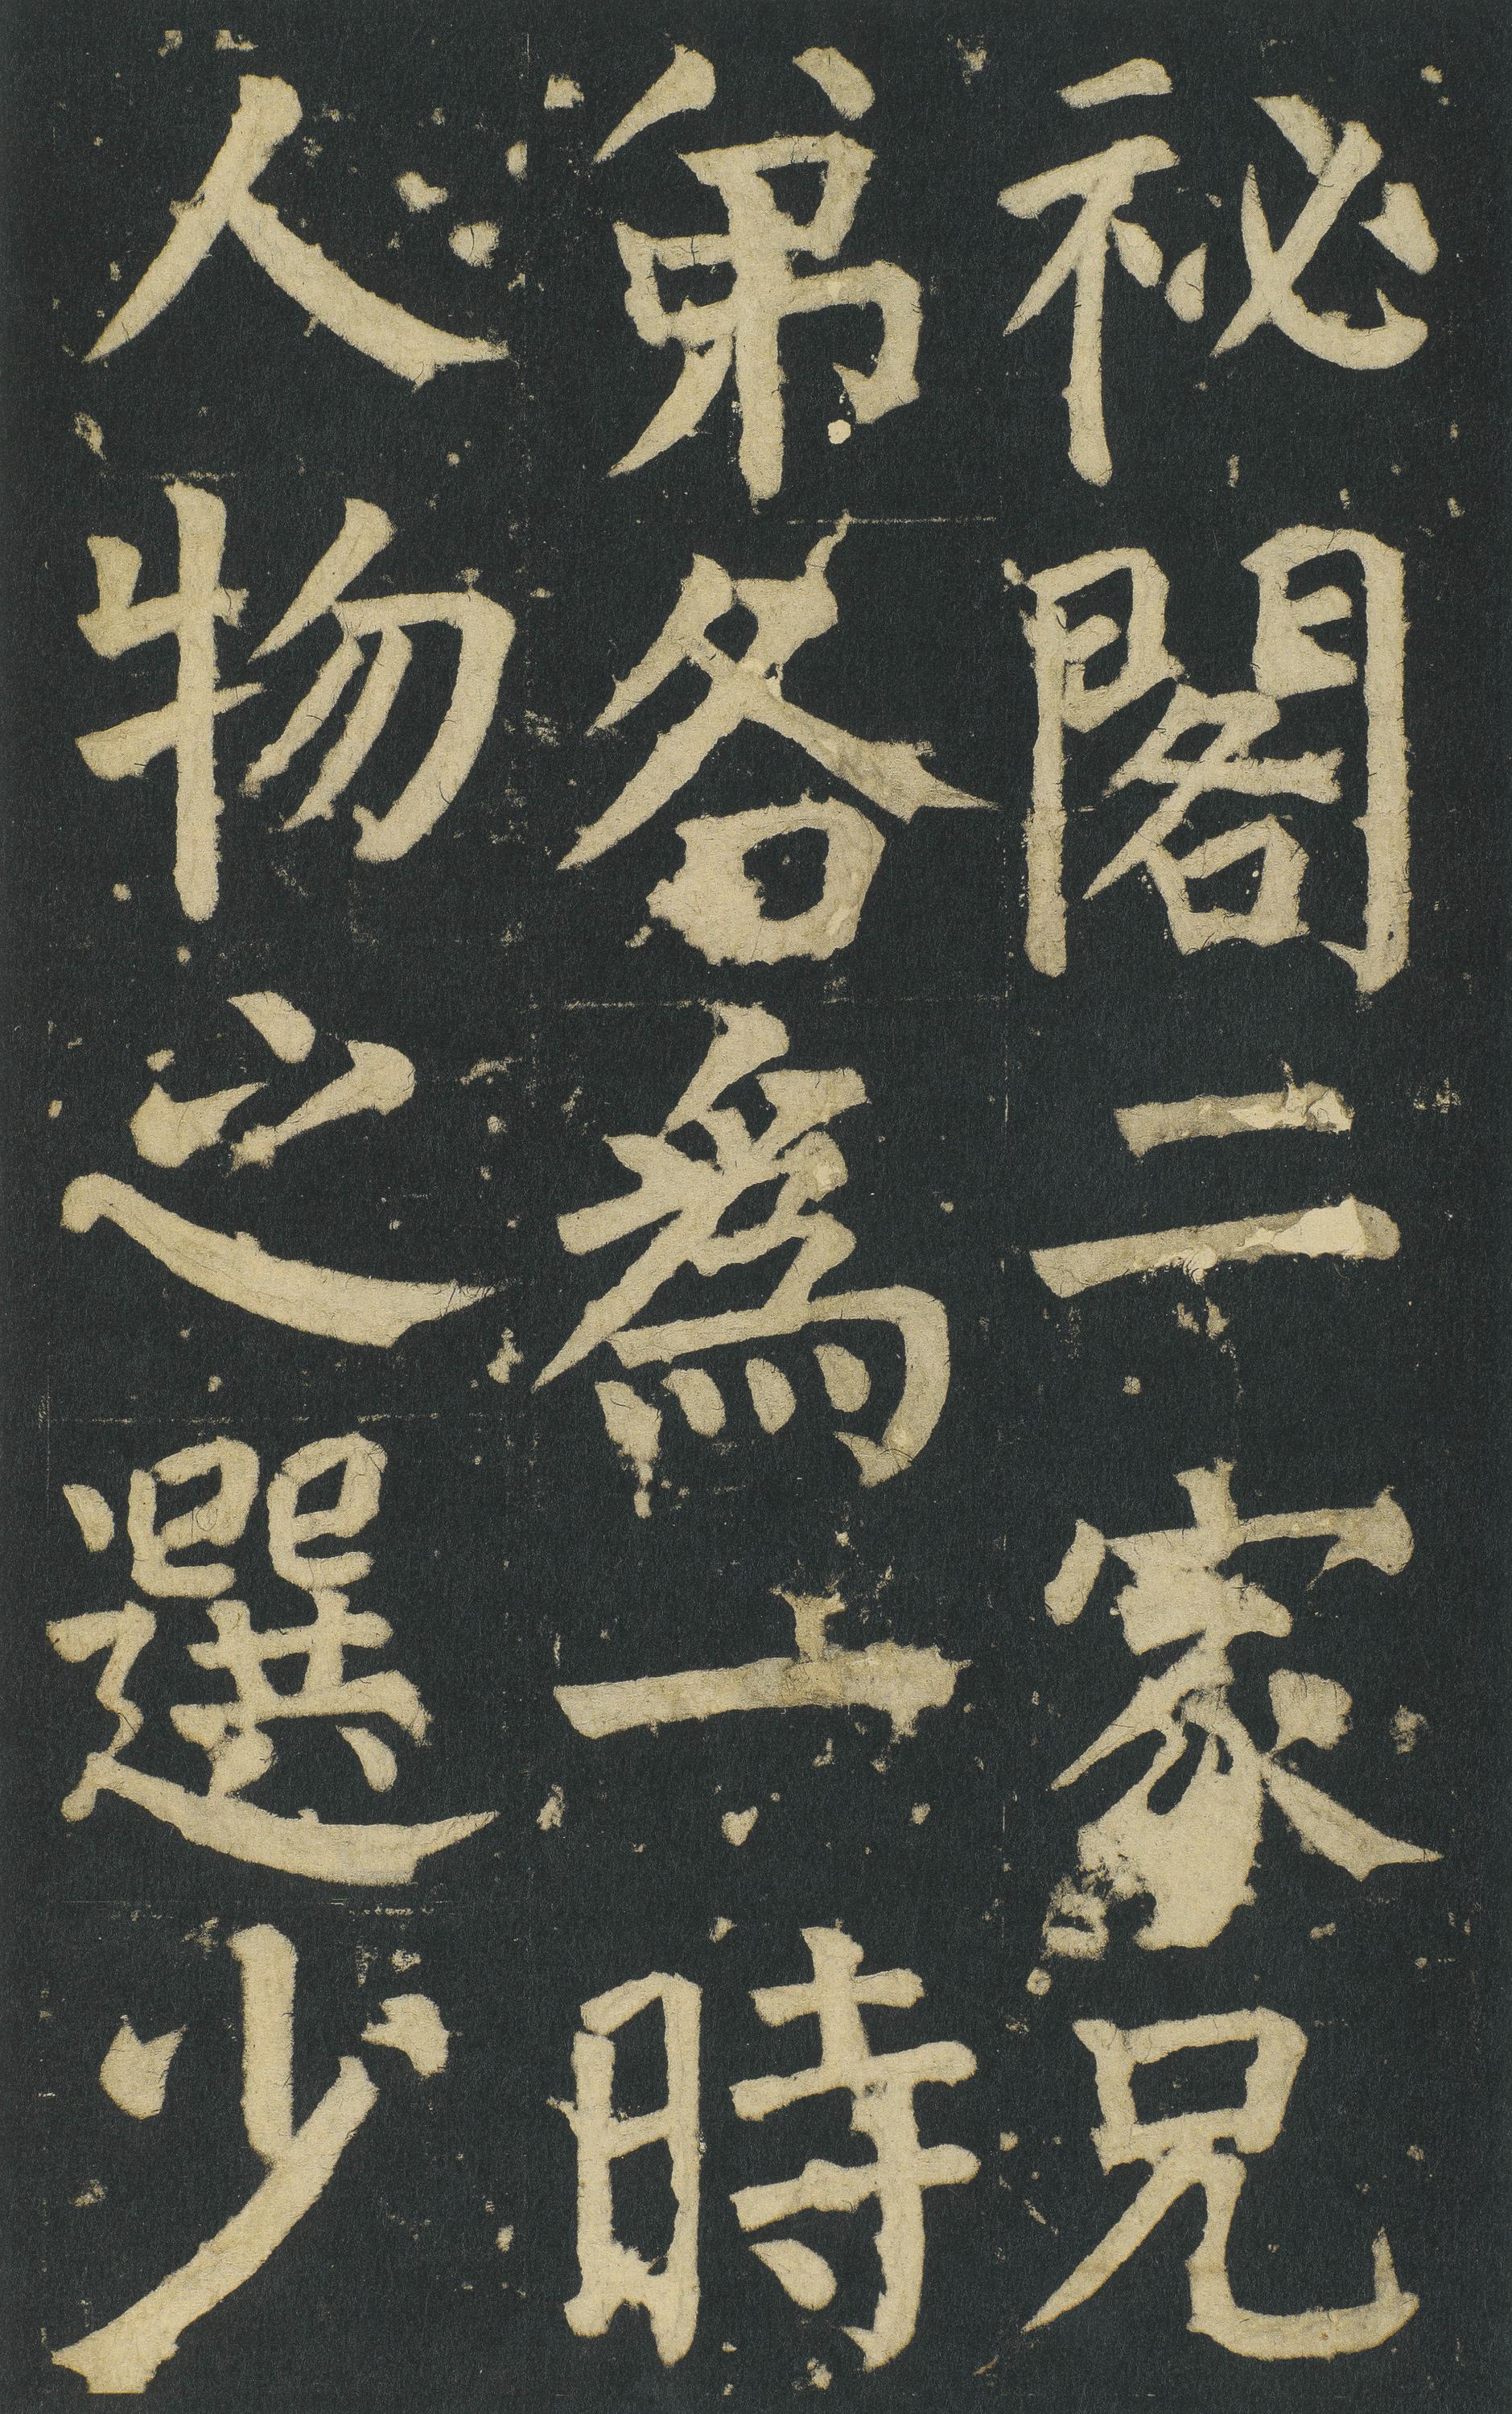 祕閣二家兄
弟各爲一時
人物之選少